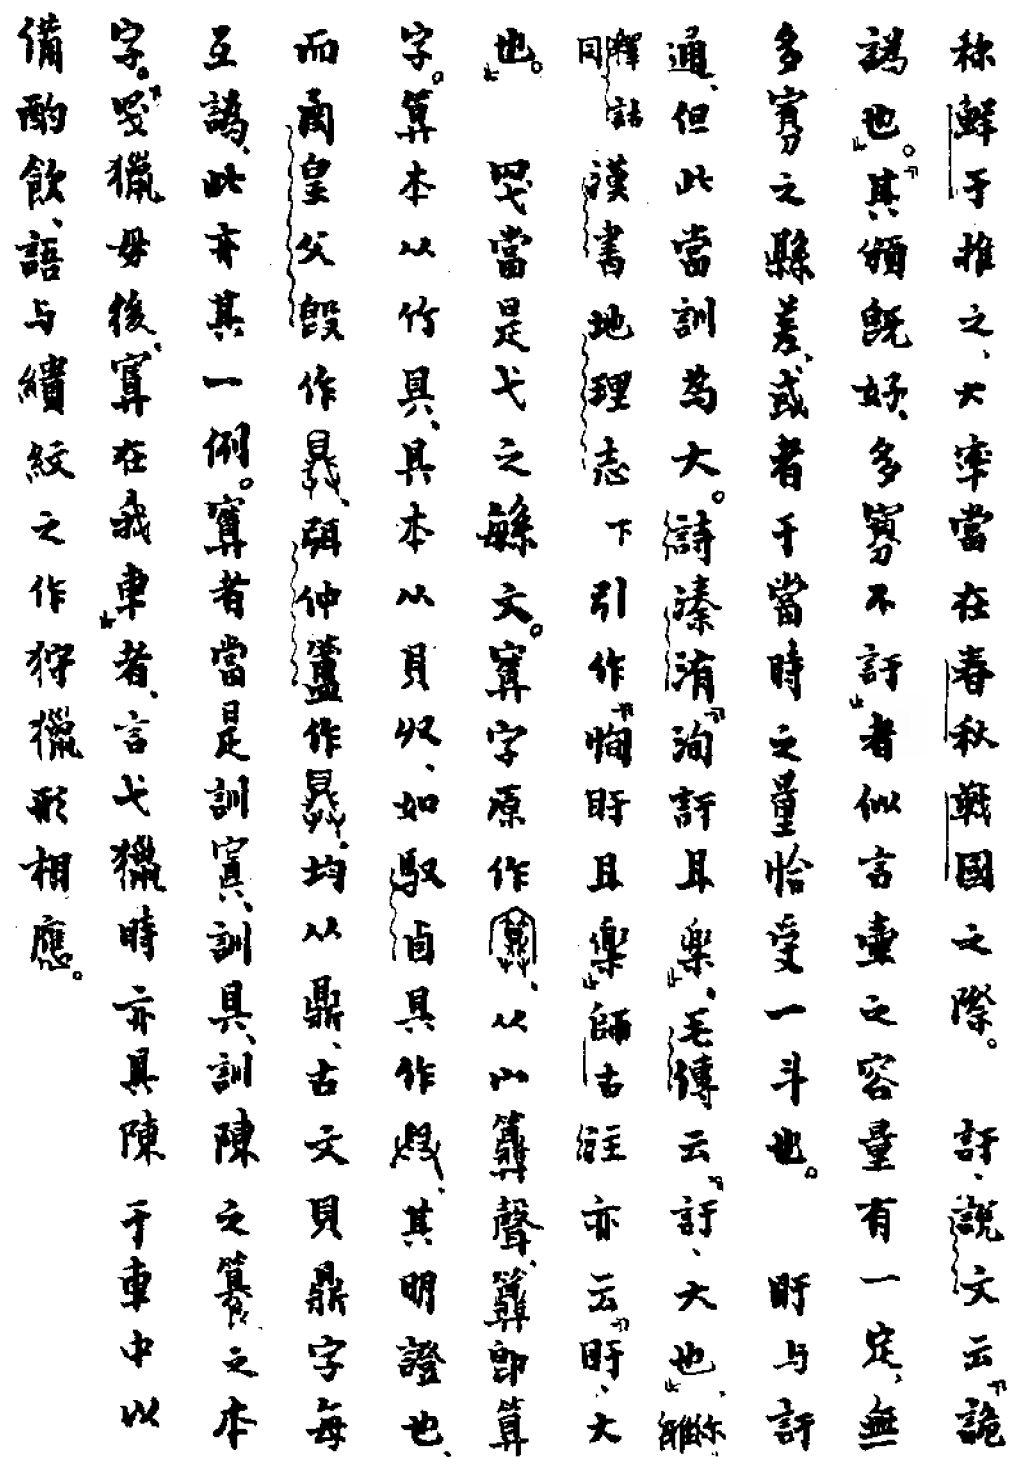 称鮮于推之、大率當在春秋戰國之際。　訏、說文云『詭
譌也。』『其頒既好、多寡不訏』者似言壷之容量有一定、無
多寡之縣差、或者于當時之量恰受一斗也。　盱与訏
通、但此當訓為大。詩溱洧『洵訏且樂』、毛傳云『訏、大也』、爾雅
釋詁同　漢書地理志下引作『恂盱且樂』師古注亦云『盱、大
也。』　當是弋之緐文。字原作、从山聲、即算
字。算本从竹具、具本从貝収、如馭卣具作、其明證也、
而函皇父𣪘作、弭仲簠作、均从鼎、古文貝鼎字每
互譌、此亦其一例。者當是訓、訓具、訓陳之籑之本
字。『獵毋後、在我車』者、言弋獵時亦具陳于車中以
備酌飲、語与繢紋之作狩獵形相應。